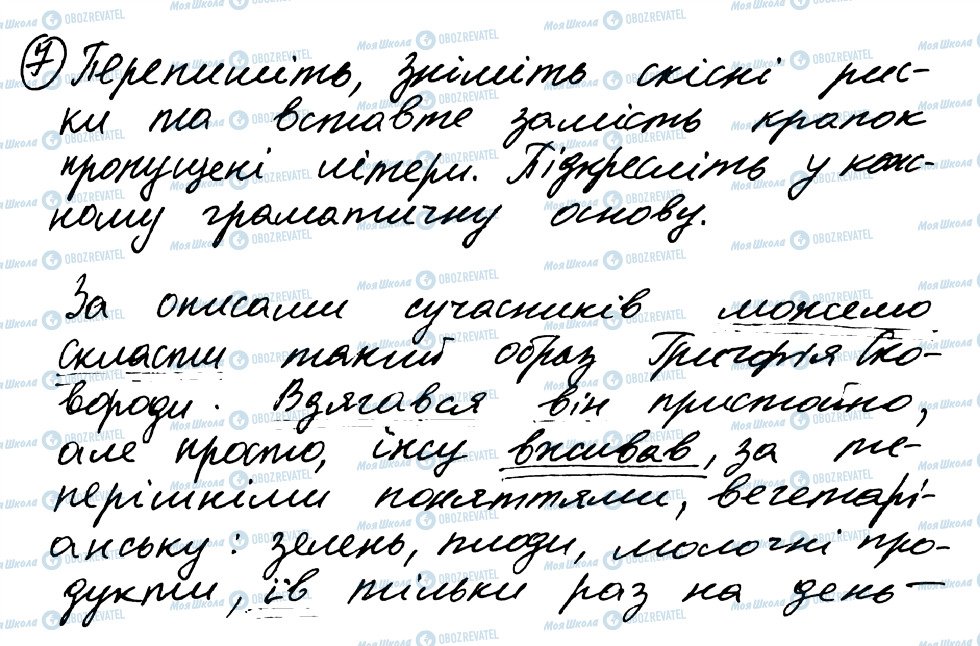 7 Перепишіть, зніміть скісні рис-
ки та вставте замість крапок
пропущені літери. Підкресліть у кож-
ному граматичну основу.
За описами сучасників можемо
скласти такий образ Григорія Ско-
вороди. Вдягався він пристойно,
але просто, їжу вживав, за те-
перішніми поняттями, вегетарі-
анську: зелень, плоди, молочні про-
дукти, їв тільки раз на день —